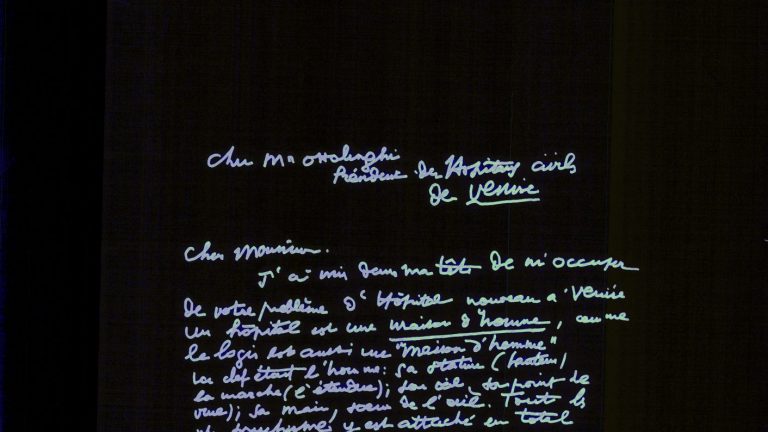 Cher Mr Ottolenghi
Président des Hôpitaux civils
de Venise
Cher Monsieur.
J'ai mis dans ma tête de m'occuper
de votre problème d'Hôpital nouveau à Venise
Un hôpital est une maison d'homme, comme
le logis est aussi une "maison d'homme"
La clef étant l'homme: sa stature (hauteur)
la marche (l'étendue); son œil, son point de
vue); sa main, sœur de l'œil. Tout le
y est attaché en total